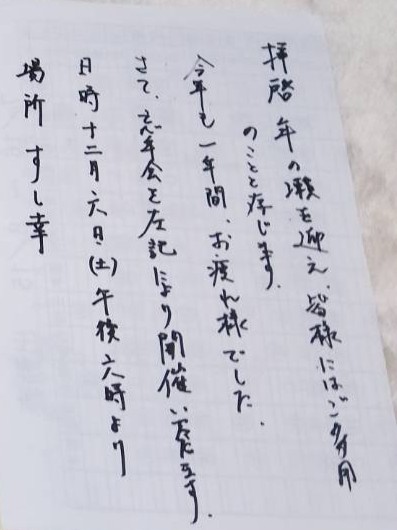 拝啓 年の瀬を迎え、皆様にはご多用
のことと存じます。
今年も一年間、お疲れ様でした。
さて、忘年会を左記により開催いたします。
日時 十二月六日(土)午後六時より
場所 すし幸